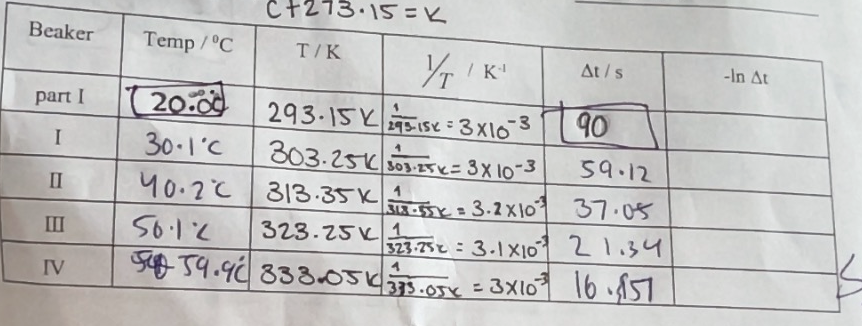 C+273.15=K
Beaker Temp / ºC T / K 1/T / K-1 Δt / s -ln Δt
part I 20.0c 293.15K 1/293.15K = 3×10-3 90
I 30.1°C 303.25K 1/303.25K = 3×10-3 59.12
II 40.2°C 313.35K 1/313.35K = 3.2×10-3 37.05
III 50.1°C 323.25K 1/323.25K = 3.1×10-3 21.34
IV 59.9°C 333.05K 1/333.05K = 3×10-3